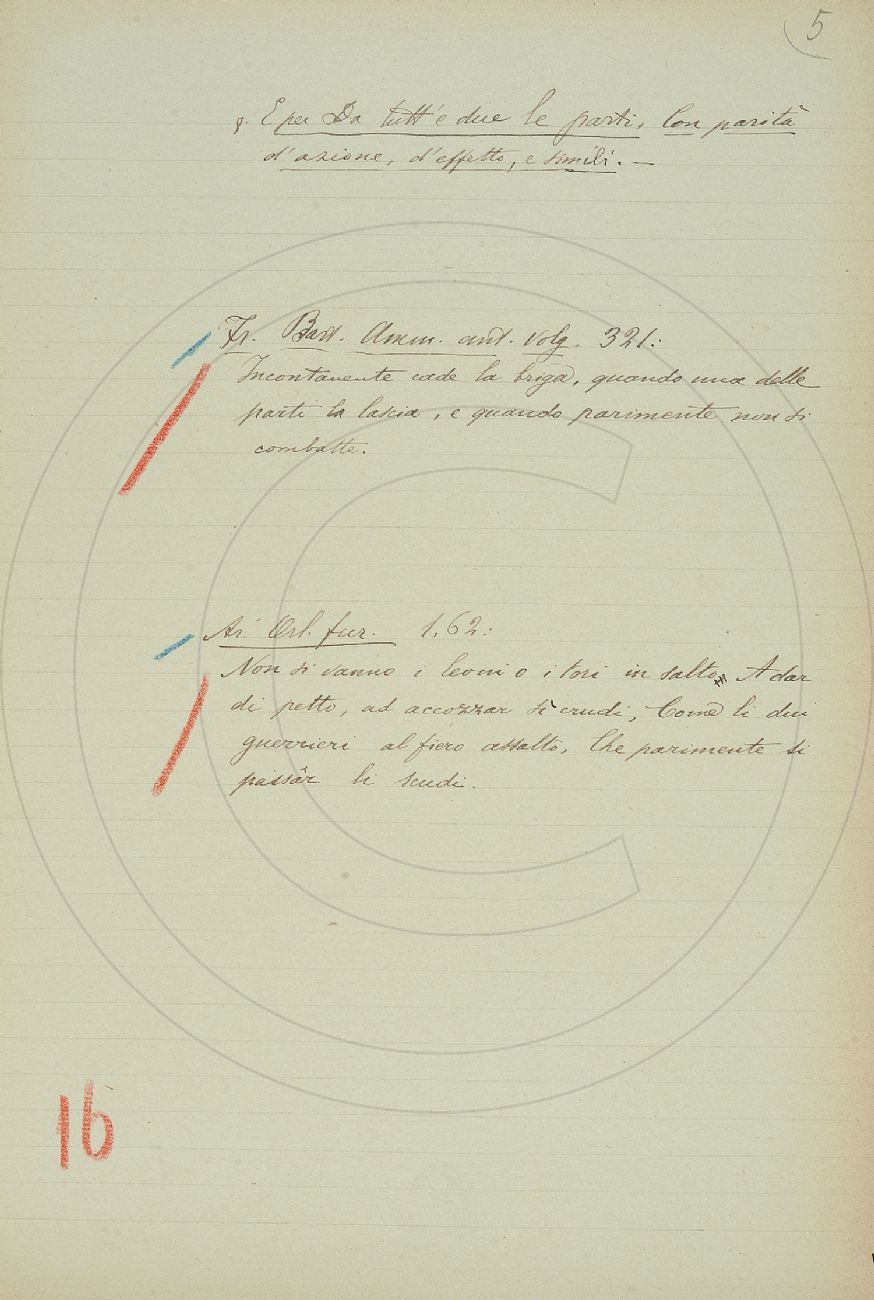 5
§. E per Da tutt'e due le parti, Con parità
d'azione, d'effetto, e simili. —
Fr. Bart. Amm. ant. volg. 321:
Incontanente cade la briga, quando una delle
parti la lascia, e quando parimente non si
combatte.
Ar. Orl. fur. 1, 62:
Non si vanno i leoni o i tori in salto A dar
di petto, ad accozzar sì crudi, Come li dui
guerrieri al fiero assalto, Che parimente si
passâr li scudi.
16